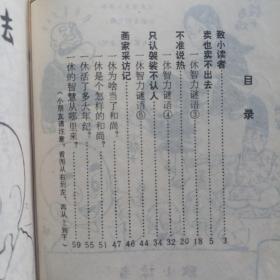 目录
致小读者 3
卖也卖不出去 5
一休智力谜语③ 18
不准说热 20
一休智力谜语④ 32
只认袈裟不认人 34
一休智力谜语⑤ 44
画家采访记 46
一休为啥当了和尚? 47
一休是个怎样的和尚? 51
一休活了多大年纪? 55
一休的智慧从哪里来? 59
(小朋友请注意,看图从右到左,再从上到下)
去